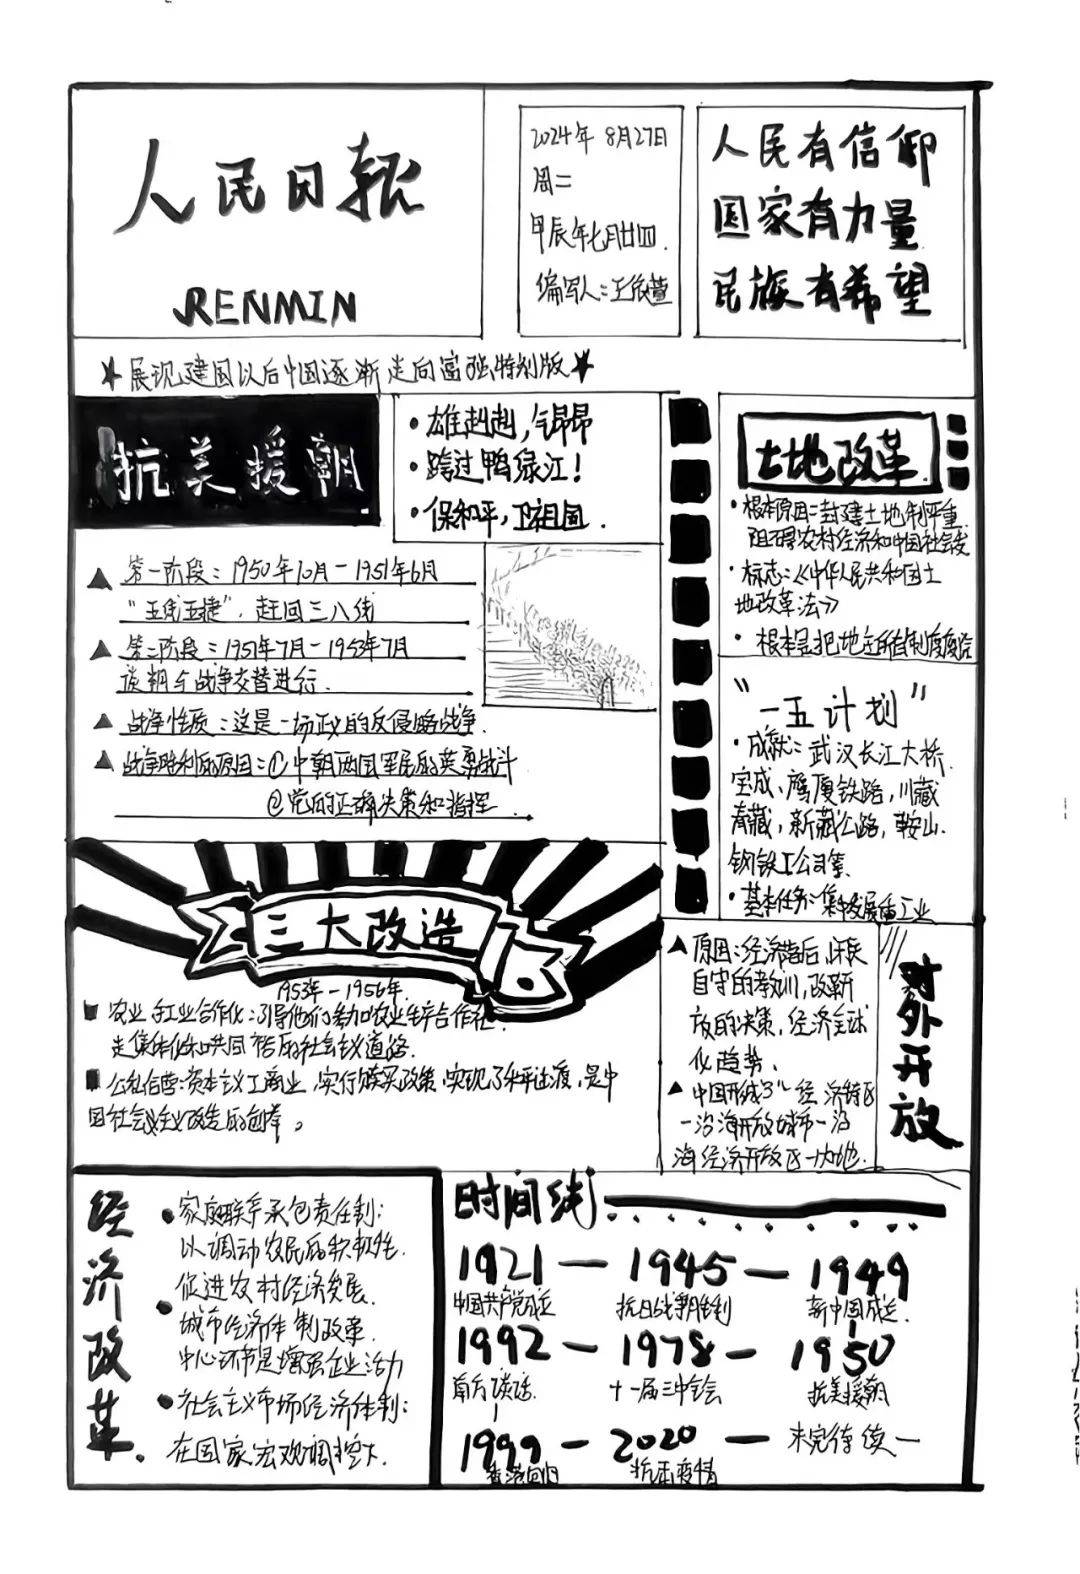 人民日报
RENMIN
2024年8月27日
周二
甲辰年七月廿四.
编写人:王依萱
人民有信仰
国家有力量
民族有希望
★展现建国以后中国逐渐走向富强特别版★
抗美援朝
•雄赳赳,气昂昂
•跨过鸭绿江!
•保和平,卫祖国.
▲第一阶段:1950年10月-1951年6月
“五战五捷”,赶回三八线
▲第二阶段:1951年7月-1953年7月
谈判与战争交替进行.
▲战争性质:这是一场正义的反侵略战争.
▲战争胜利的原因:①中朝两国军民的英勇战斗
②党的正确决策和指挥
土地改革
•根本原因:封建土地制严重
阻碍农村经济和中国社会发
•标志:《中华人民共和国土
地改革法》
•根本是把地主所有制度废除
“一五计划”
•成就:武汉长江大桥.
宝成、鹰厦铁路,川藏
青藏,新藏公路,鞍山.
钢铁工公司等.
•基本任务:集中发展重工业
三大改造
1953年-1956年.
■农业手工业合作化:引导他们参加农业生产合作社.
走集体化和共同富裕的社会主义道路.
■公私合营:资本主义工商业,实行赎买政策,实现了和平过渡,是中
国社会主义改造的创举。
对外开放
▲原因:经济落后,闭关
自守的教训,改革开
放的决策,经济全球
化趋势.
▲中国形成了“经济特区
一沿海开放城市一沿
海经济开放区一内地.
经济改革.
•家庭联产承包责任制:
以调动农民的积极性.
促进农村经济发展.
•城市经济体制改革.
中心环节是增强企业活力
•社会主义市场经济体制:
在国家宏观调控下.
时间线
1921—1945—1949
中国共产党成立 抗日战争胜利 新中国成立
1992—1978—1950
南方谈话. 十一届三中全会 抗美援朝
1999—2020—未完待续一
香港回归 抗击疫情